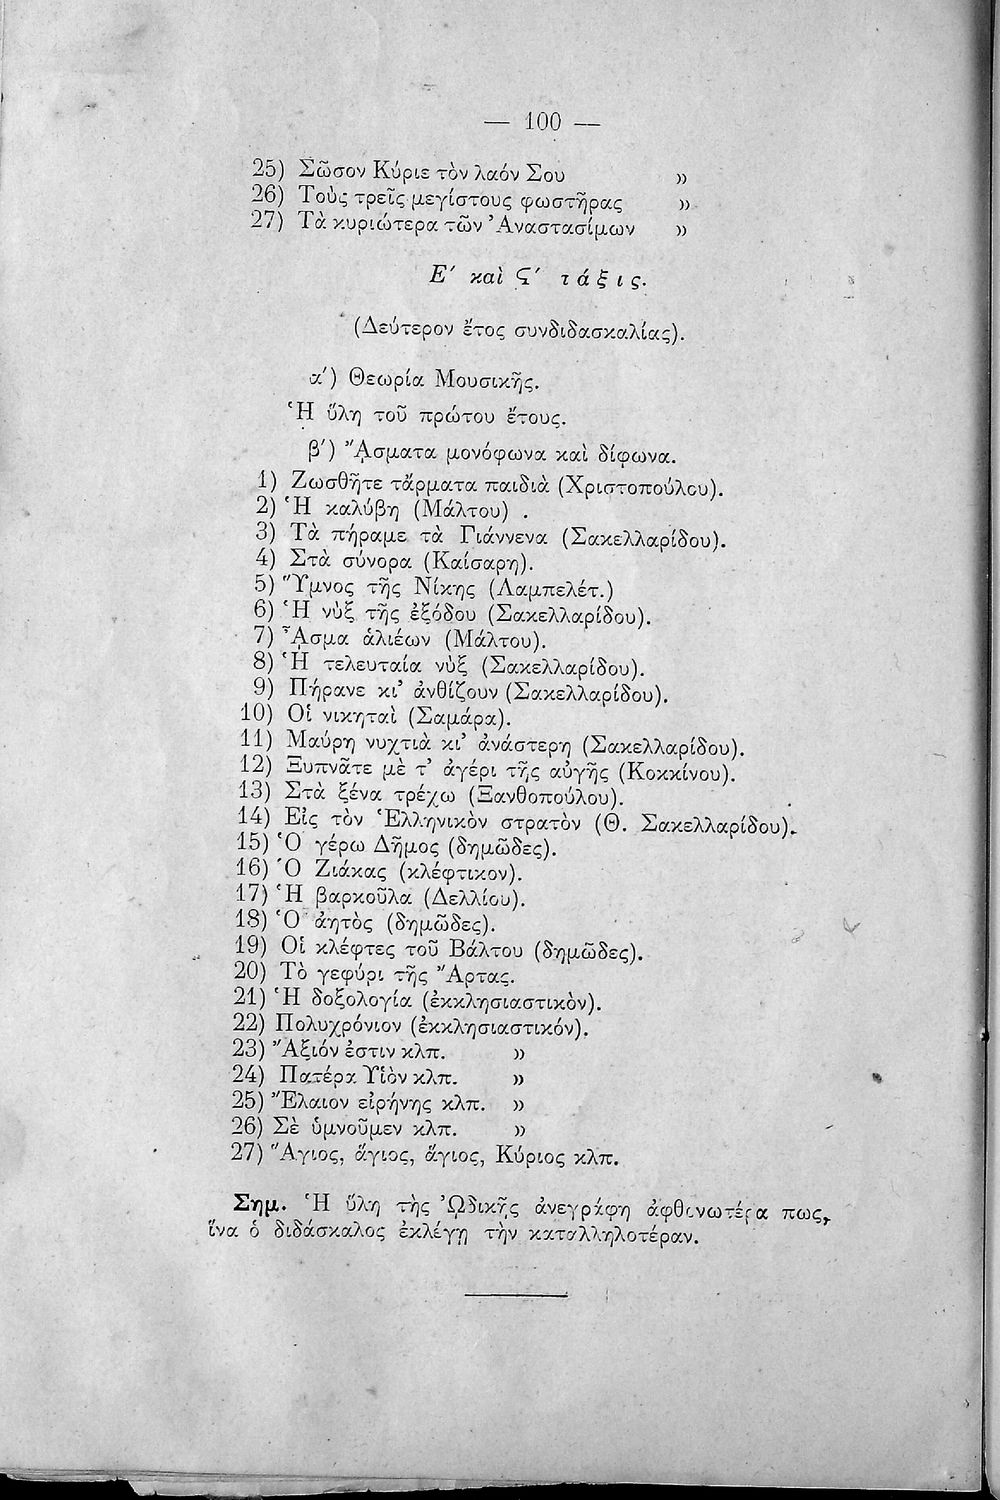 — 100 —
25) Σῶσον Κύριε τὸν λαόν Σου »
26) Τοὺς τρεῖς μεγίστους φωστῆρας »
27) Τὰ κυριώτερα τῶν Ἀναστασίμων »
Ε΄ καὶ Ϛ΄ τάξις.
(Δεύτερον ἔτος συνδιδασκαλίας).
α΄) Θεωρία Μουσικῆς.
Ἡ ὕλη τοῦ πρώτου ἔτους.
β΄) ᾌσματα μονόφωνα καὶ δίφωνα.
1) Ζωσθῆτε τἄρματα παιδιὰ (Χριστοπούλου).
2) Ἡ καλύβη (Μάλτου) .
3) Τὰ πήραμε τὰ Γιάννενα (Σακελλαρίδου).
4) Στὰ σύνορα (Καίσαρη).
5) Ὕμνος τῆς Νίκης (Λαμπελέτ.)
6) Ἡ νὺξ τῆς ἐξόδου (Σακελλαρίδου).
7) ᾎσμα ἁλιέων (Μάλτου).
8) Ἡ τελευταία νὺξ (Σακελλαρίδου).
9) Πήρανε κι᾿ ἀνθίζουν (Σακελλαρίδου).
10) Οἱ νικηταὶ (Σαμάρα).
11) Μαύρη νυχτιὰ κι᾿ ἀνάστερη (Σακελλαρίδου).
12) Ξυπνᾶτε μὲ τ᾿ ἀγέρι τῆς αὐγῆς (Κοκκίνου).
13) Στὰ ξένα τρέχω (Ξανθοπούλου).
14) Εἰς τὸν Ἑλληνικὸν στρατὸν (Θ. Σακελλαρίδου).
15) Ὁ γέρω Δῆμος (δημῶδες).
16) Ὁ Ζιάκας (κλέφτικον).
17) Ἡ βαρκοῦλα (Δελλίου).
18) Ὁ ἀητὸς (δημῶδες).
19) Οἱ κλέφτες τοῦ Βάλτου (δημῶδες).
20) Τὸ γεφύρι τῆς Ἄρτας.
21) Ἡ δοξολογία (ἐκκλησιαστικὸν).
22) Πολυχρόνιον (ἐκκλησιαστικόν).
23) Ἄξιόν ἐστιν κλπ. »
24) Πατέρα Υἱὸν κλπ. »
25) Ἔλαιον εἰρήνης κλπ. »
26) Σὲ ὑμνοῦμεν κλπ. »
27) Ἅγιος, ἅγιος, ἅγιος, Κύριος κλπ.
Σημ. Ἡ ὕλη τῆς Ὠδικῆς ἀνεγράφη ἀφθονωτέρα πως,
ἵνα ὁ διδάσκαλος ἐκλέγῃ τὴν καταλληλοτέραν.